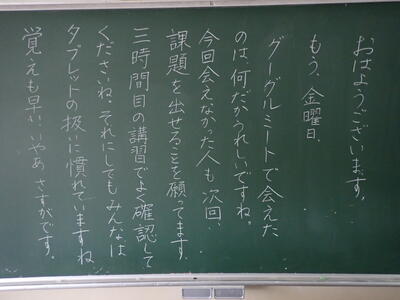 おはようございます。
もう、金曜日。
グーグルミートで会えた
のは、何だかうれしいですね。
今回会えなかった人も次回、
課題を出せることを願ってます。
三時間目の講習でよく確認して
くださいね。それにしてもみんなは
タブレットの扱いに慣れていますね
覚えも早い。いやぁ さすがです。